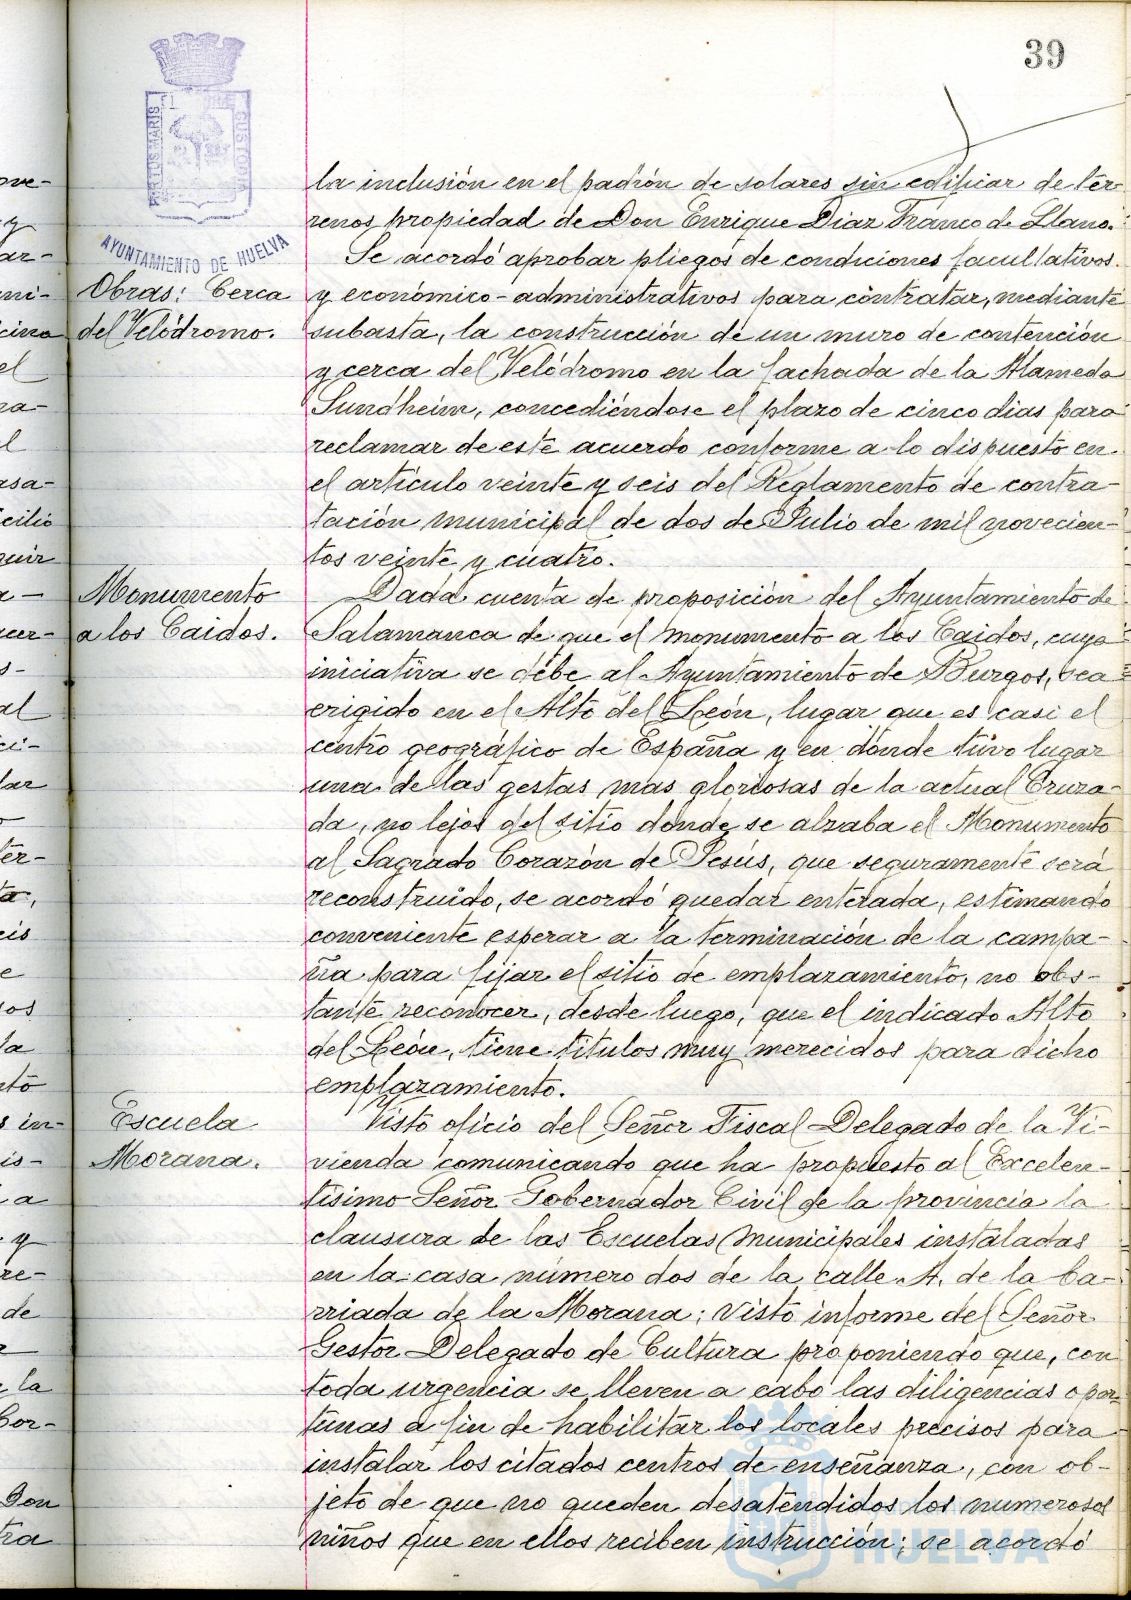 39
PORTUS MARIS
CUSTODIA
AYUNTAMIENTO DE HUELVA
la inclusión en el padrón de solares sin edificar de ter-
renos propiedad de Don Enrique Díaz Franco de Llano.
Obras: Cerca
del Velódromo.
Se acordó aprobar pliegos de condiciones facultativos
y económico-administrativos para contratar, mediante
subasta, la construcción de un muro de contención
y cerca del Velódromo en la fachada de la Alameda
Sundheim, concediéndose el plazo de cinco dias para
reclamar de este acuerdo conforme a lo dispuesto en
el artículo veinte y seis del Reglamento de contra-
tación municipal de dos de Julio de mil novecien-
tos veinte y cuatro.
Monumento
a los Caidos.
Dada cuenta de proposición del Ayuntamiento de
Salamanca de que el monumento a los Caidos, cuya
iniciativa se debe al Ayuntamiento de Burgos, sea
erigido en el Alto del León, lugar que es casi el
centro geográfico de España y en dónde tuvo lugar
una de las gestas mas gloriosas de la actual Cruza-
da, no lejos del sitio donde se alzaba el Monumento
al Sagrado Corazón de Jesús, que seguramente será
reconstruido, se acordó quedar enterada, estimando
conveniente esperar a la terminación de la campa-
ña para fijar el sitio de emplazamiento, no obs-
tante reconocer, desde luego, que el indicado Alto
del León, tiene titulos muy merecidos para dicho
emplazamiento.
Escuela
Morana.
Visto oficio del Señor Fiscal Delegado de la Vi-
vienda comunicando que ha propuesto al Excelen-
tísimo Señor Gobernador Civil de la provincia la
clausura de las Escuelas Municipales instaladas
en la casa número dos de la calle A. de la ba-
rriada de la Morana; visto informe del Señor
Gestor Delegado de Cultura proponiendo que, con
toda urgencia se lleven a cabo las diligencias opor-
tunas a fin de habilitar los locales precisos para
instalar los citados centros de enseñanza, con ob-
jeto de que no queden desatendidos los numerosos
niños que en ellos reciben instrucción; se acordó
HUELVA